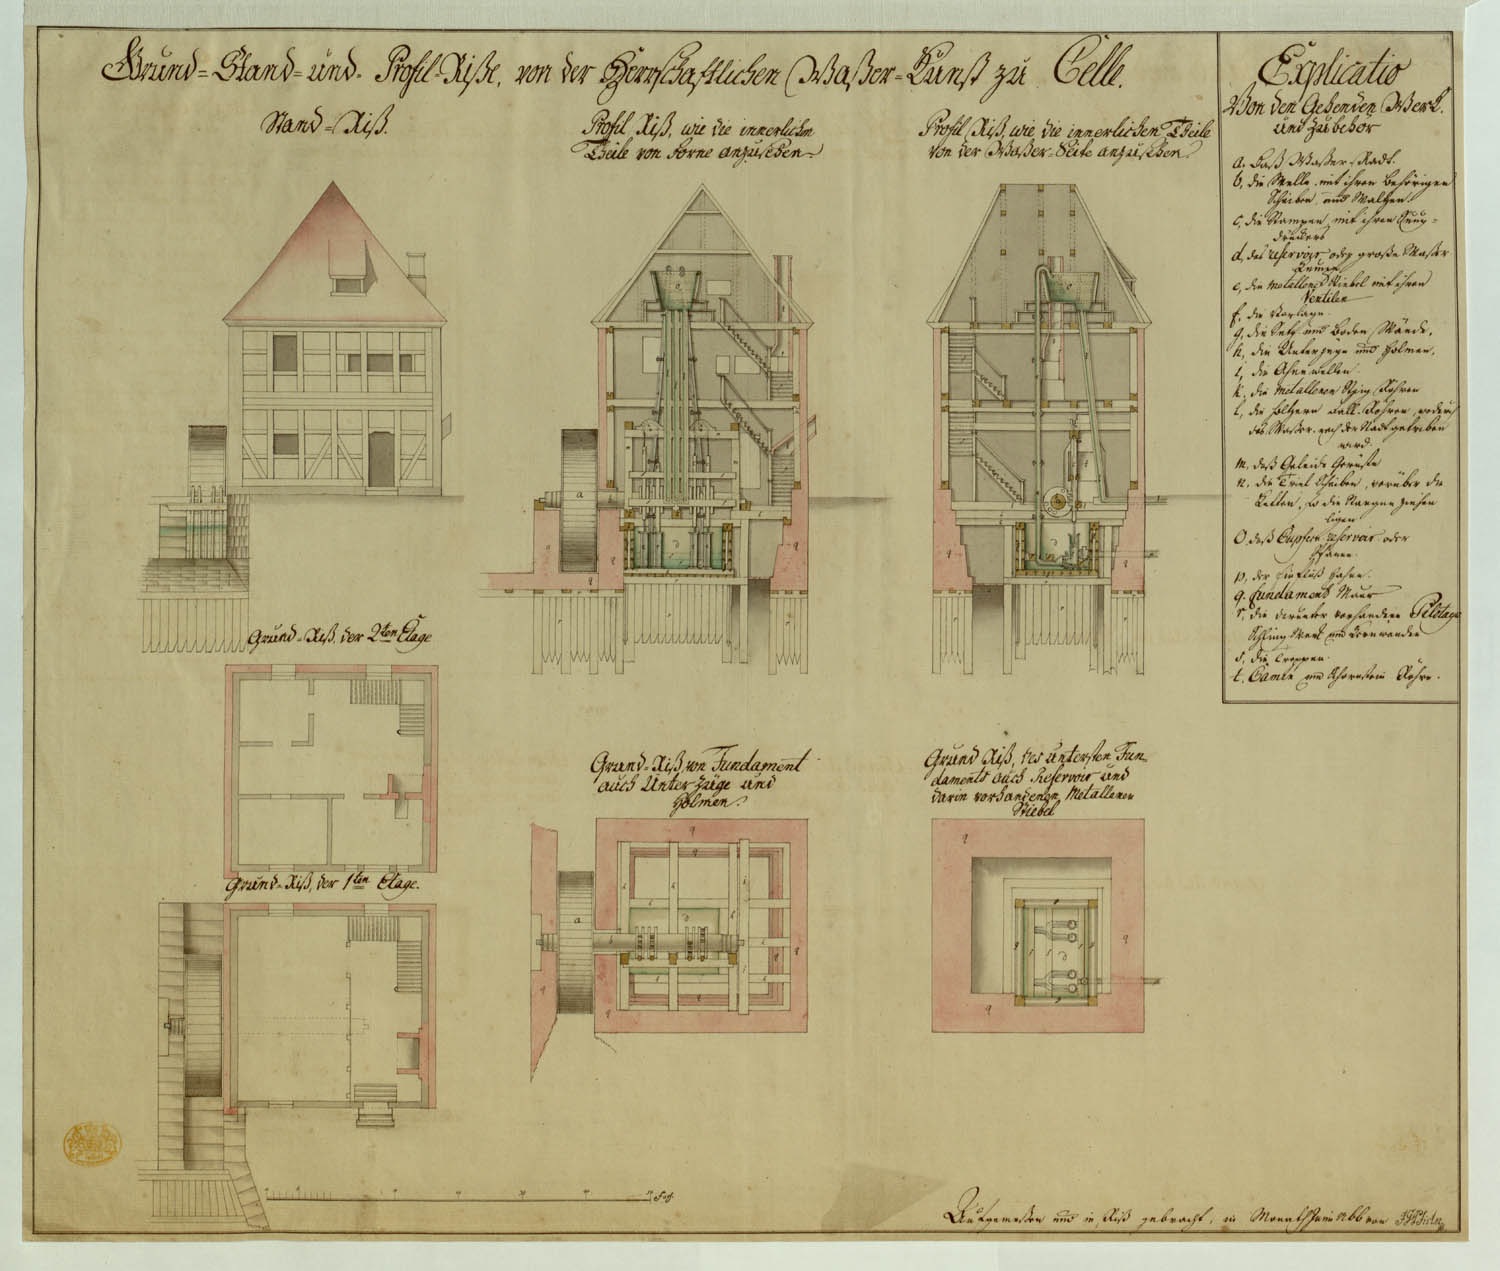 Grund= Stand= und. Profil=Riße, von der Herrschaftlichen Waßer=Kunst zu Celle.
Stand=Riß.
Profil Riß, wie die innerlichen
Theile von forne anzusehen.
Profil Riß, wie die innerlichen Theile
von der Waßer=Seite anzusehen.
Explicatio
Von den Gehenden Werk.
und Zubehör
a, daß Waßer=Radt.
b, die Welle mit ihren behörigen
Scheiben und Walzen.
c, die Stampen mit ihren
drückers
d, das reservoir, oder große Waßer
e, die Metallene Stiebel mit ihren
Ventilen
f. die Vorlage.
g, die Setz und Boden Wände,
h, die Unterzüge und Holmen,
i, die
k, die Metallenen Steig Röhren
l, die höltzern Fall=Röhren, wodurch
das Waßer nach der Stadt getrieben
wird.
m, daß Geleide Gerüste
n, die Scheiben, worüber die
Ketten, so die Stangen ziehen
liegen
O, daß Kupfern reservoir oder
Pfanne.
p, der Einfluß
q, fundament Maur
r, die darunter vorhandene Pilotage
und
s, die Treppen.
t. Camin und Schornstein Röhre.
Grund=Riß, der 2ten Etage
Grund=Riß von Fundament
auch Unter Züge und
Holmen.
Grund Riß, des untersten Fun=
daments auch Reservoir und
darin vorhandenen Metallenen
Stiebel
Grund=Riß, der 1ten Etage.
Aufgemeßen und in Riß gebracht, im Monath Juni 1766 von